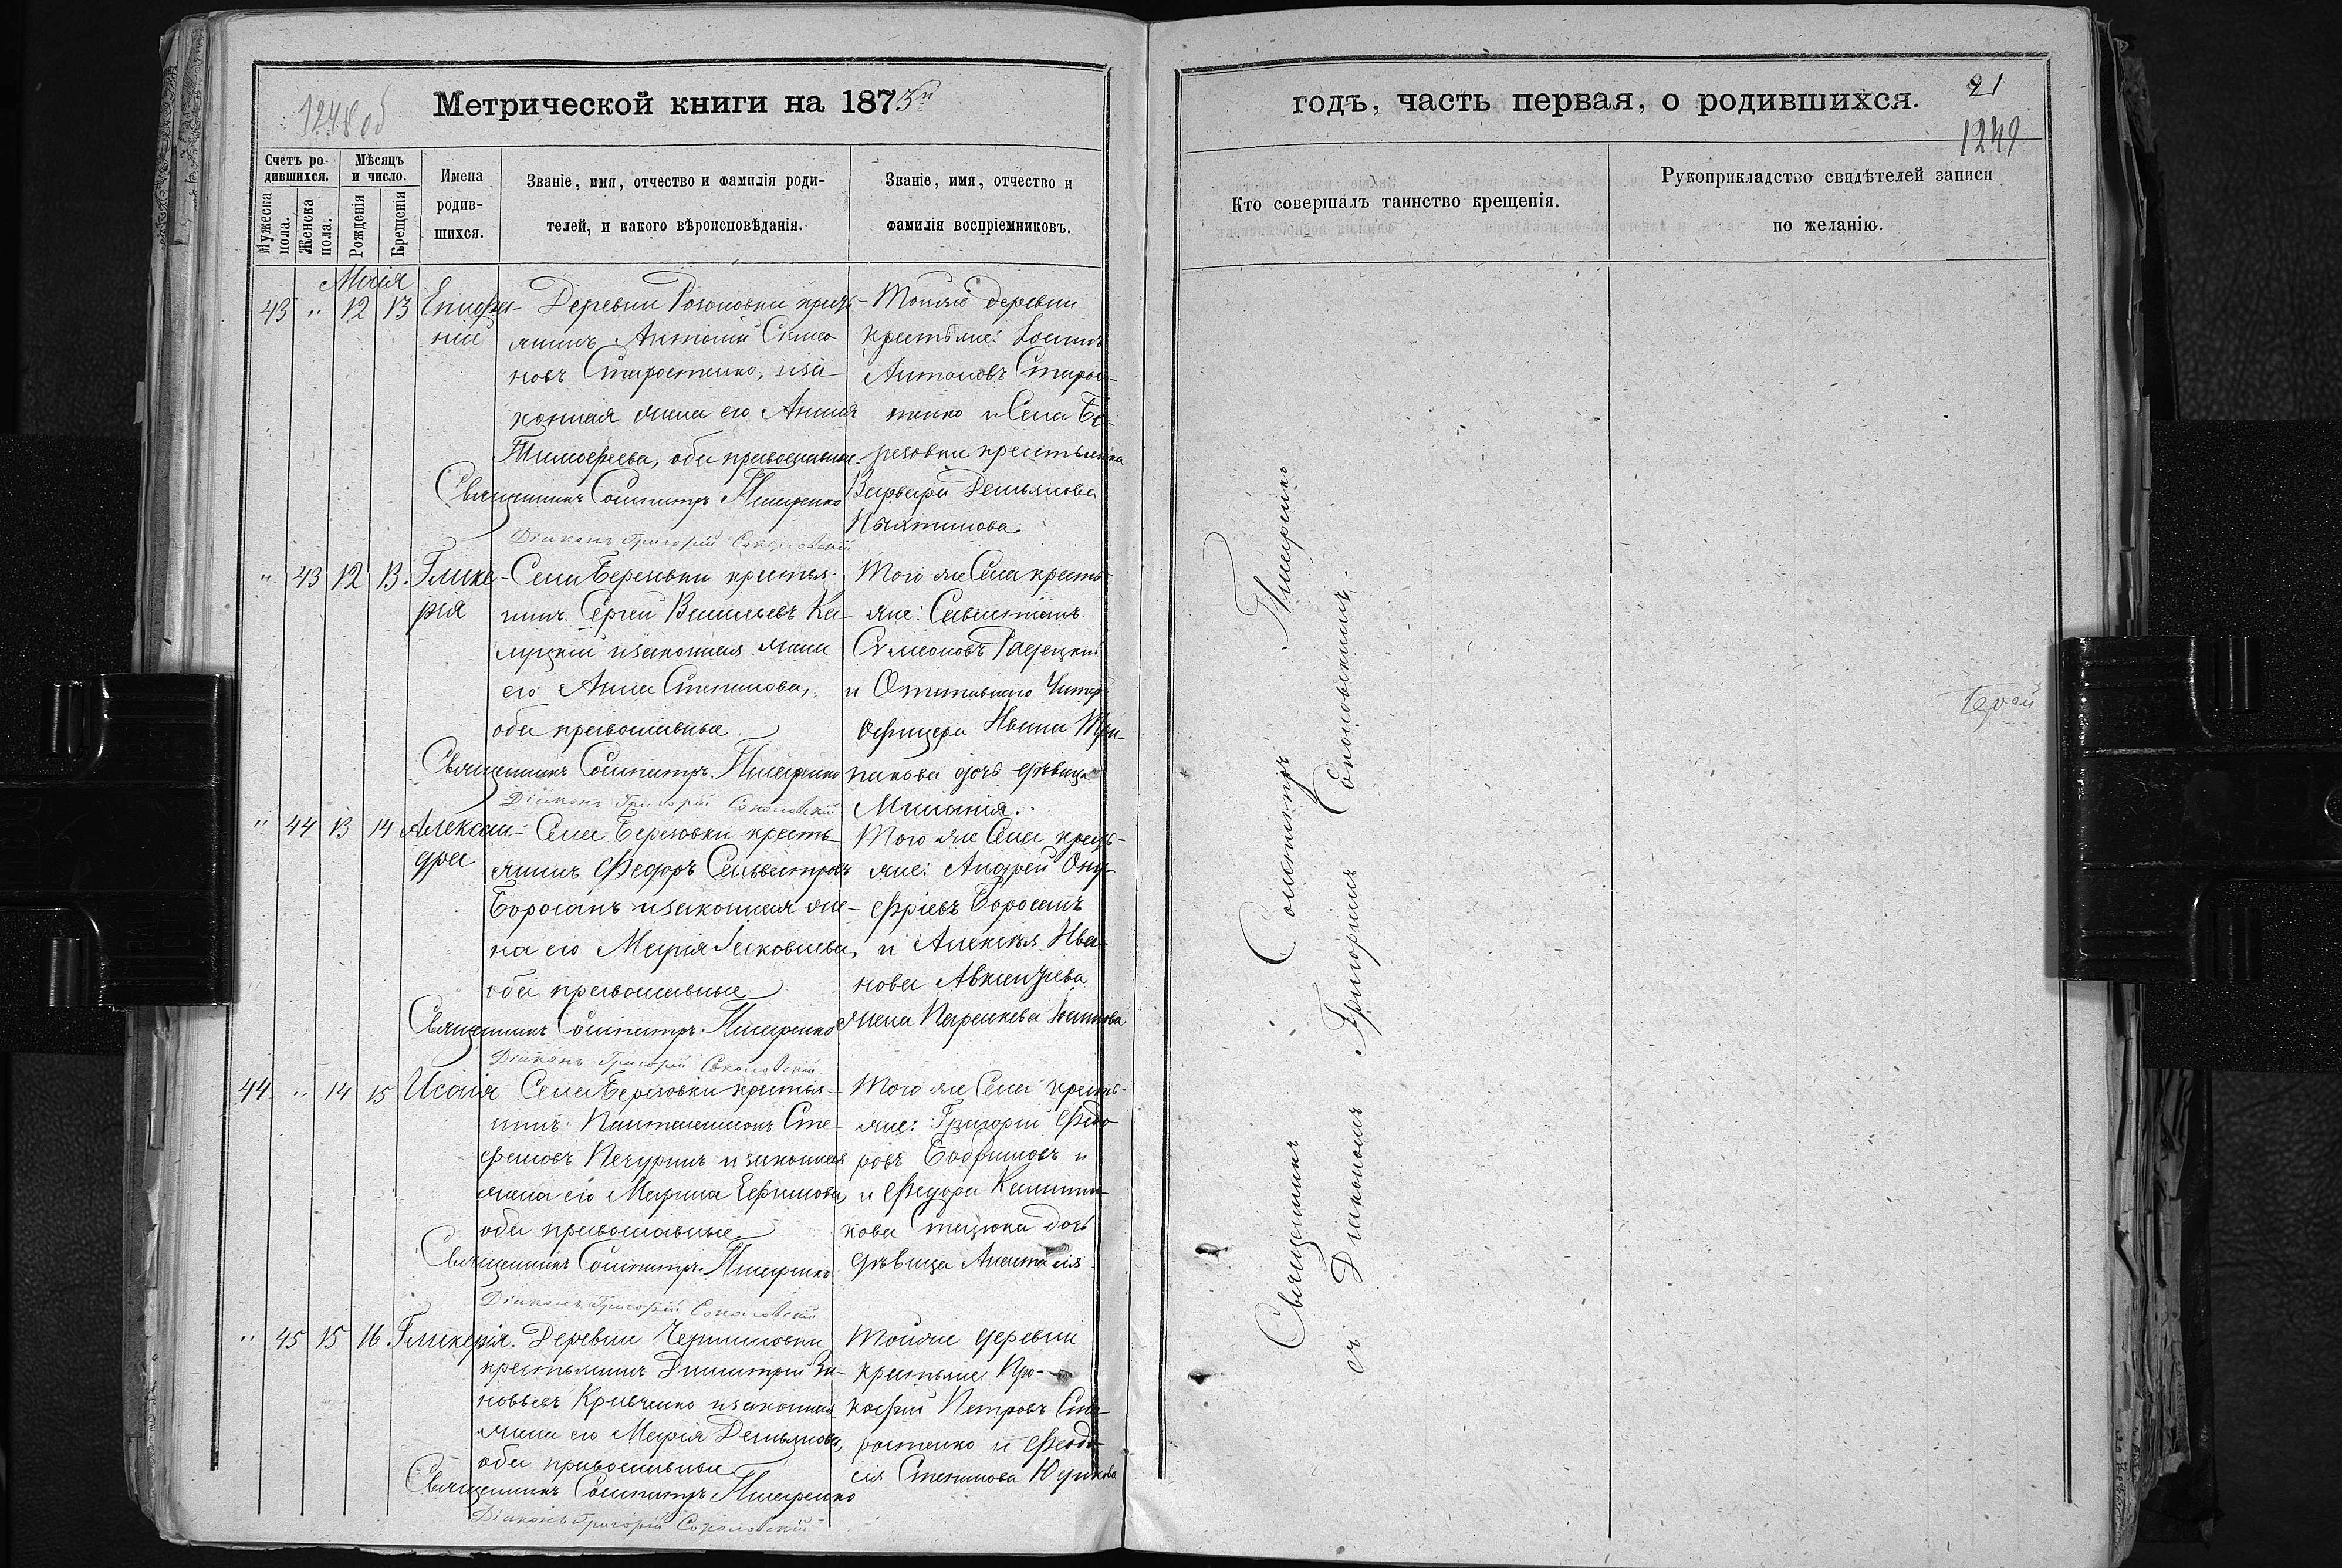 1248 об
Метрической книги на 1873й
Счетъ ро-
дившихся.
Мѣсяцъ
и число.
Мужеска
пола.
Женска
пола.
Рожденія
Крещенія
Имена
родив-
шихся.
Званіе, имя, отчество и фамилія роди-
телей, и какого вѣроисповѣданія.
Званіе, имя, отчество и
фамилія воспріемниковъ.
Маія
43 " 12 13 Епифа-
ній
Деревни крестъ-
янинъ Антоній Симео
новъ Старостенко, иза
конная жена его Анна
Тимофеева, оба православные.
Священникъ Сосипатръ Писаренко
Діаконъ Григорій Соколовскій
Тойже деревни
крестьяне: Іоаннъ
Антоновъ Старос-
тенко и Села Бе-
резовки крестьянка
Варвара Демьянова
" 43 12 13. Глике-
рія
Села Березовки крестья-
нинъ Сергій Васильевъ Ка-
луцкій изаконная жена
его Анна Степанова,
оба православные
Священникъ Сосипатръ Писаренко
Діаконъ Григорій Соколовскій
Того же Села крестъ-
яне: Савастіанъ
Симеоновъ Радецкій
и Отставнаго Унтер
Офицера Ивана
дочь дѣвица
Миланія.
" 44 13 14 Алексан-
дра
Села Березовки кресть-
янинъ Федоръ Сильвестровъ
Бороганъ изаконная же-
на его Марія Іаковлева,
оба православные
Священникъ Сосипатръ Писаренко
Діаконъ Григорій Соколовскій
Того же Села крест-
яне: Андрей Ону-
фріевъ Бороганъ
и Алексѣя Ива-
нова
жена Параскева Іоаннова
44 " 14 15 Исаія
Села Березовки крестья-
нинъ Пантелеимонъ Сте-
фановъ Печуринъ и законная
жена его Марина Ефимова
оба православные
Священникъ Сосипатръ Писаренко
Діаконъ Григорій Соколовскій
Того же Села кресть-
яне: Григорій Федо
ровъ и
и Федора
дочь
дѣвица Анастасія
" 45 15 16. Гликерія.
Деревни
крестьянинъ Димитрій Зи-
новьевъ Кривченко изаконная
жена его Марія Демьянова,
оба православные
Священникъ Сосипатръ Писаренко
Діаконъ Григорій Соколовскій
Тойже деревни
крестьяне: Про-
кофій Петровъ Ста-
ростенко и Феодо-
сія Степанова
годъ, часть первая, о родившихся.
21
1249
Кто совершалъ таинство крещенія.
Рукоприкладство свидѣтелей записи
по желанію.
Священникъ Сосипатръ Писаренко
съ Діакономъ Григоріемъ Соколовскимъ.
Іерей